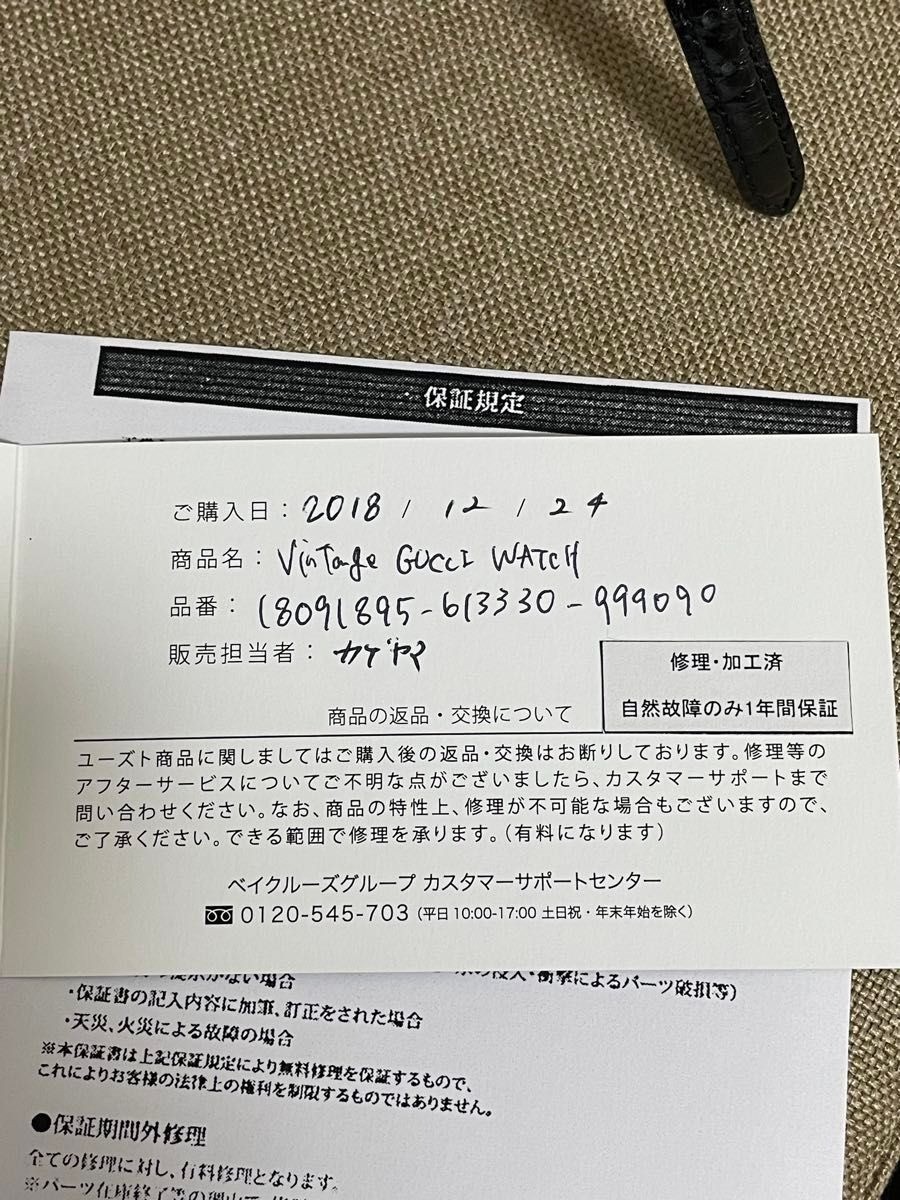 保証規定
ご購入日: 2018 / 12 / 24
商品名: Vintage GUCCI WATCH
品番: 18091895-613330-999090
販売担当者: カゲヤマ
修理・加工済
自然故障のみ1年間保証
商品の返品・交換について
ユーズト商品に関しましてはご購入後の返品・交換はお断りしております。修理等の
アフターサービスについてご不明な点がございましたら、カスタマーサポートまで
問い合わせください。なお、商品の特性上、修理が不可能な場合もございますので、
ご了承ください。できる範囲で修理を承ります。(有料になります)
ベイクルーズグループ カスタマーサポートセンター
0120-545-703 (平日 10:00-17:00 土日祝・年末年始を除く)
がない場合
衝撃によるパーツ破損等)
・保証書の記入内容に加筆、訂正をされた場合
・天災、火災による故障の場合
※本保証書は上記保証規定により無料修理を保証するもので、
これによりお客様の法律上の権利を制限するものではありません。
●保証期間外修理
全ての修理に対し、有料修理となります。
※パーツ在庫終了等の理由で